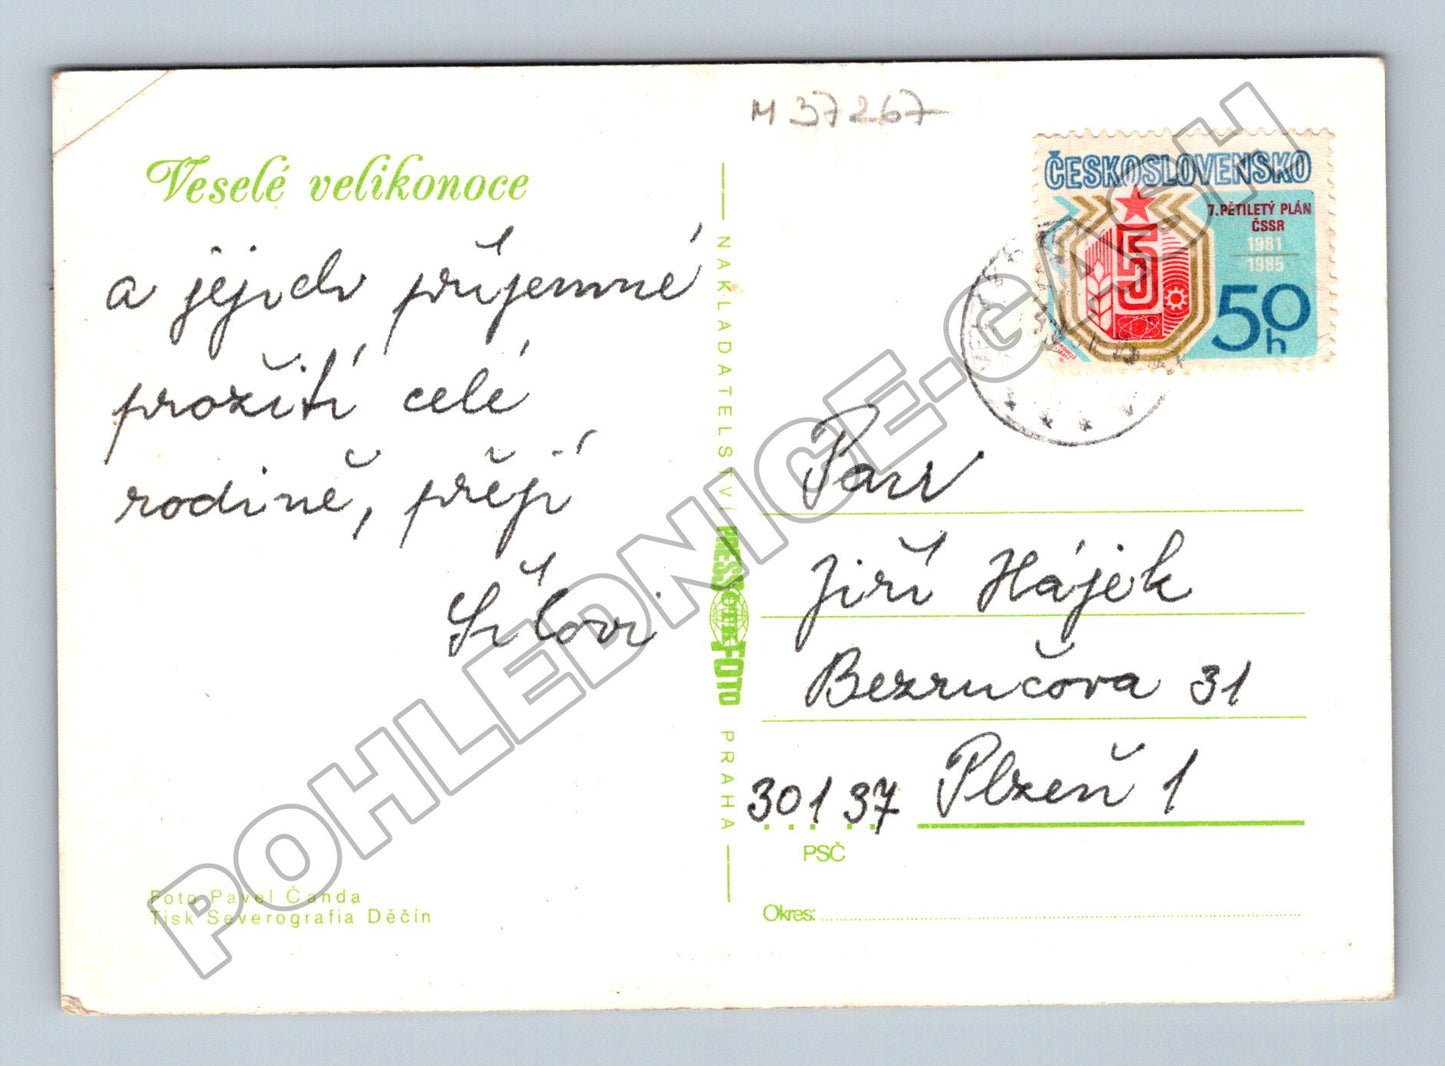 M 37267
Veselé velikonoce
a jejich příjemné
prožití celé
rodině, přejí
Šílovi
Foto Pavel Čanda
Tisk Severografia Děčín
NAKLADATELSTVÍ PRESSFOTO PRAHA
ČESKOSLOVENSKO
7. PĚTILETÝ PLÁN
ČSSR
1981
1985
5
50h
Pan
Jiří Hájek
Bezručova 31
301 37 Plzeň 1
PSČ
Okres:
POHLEDNICE-GASH